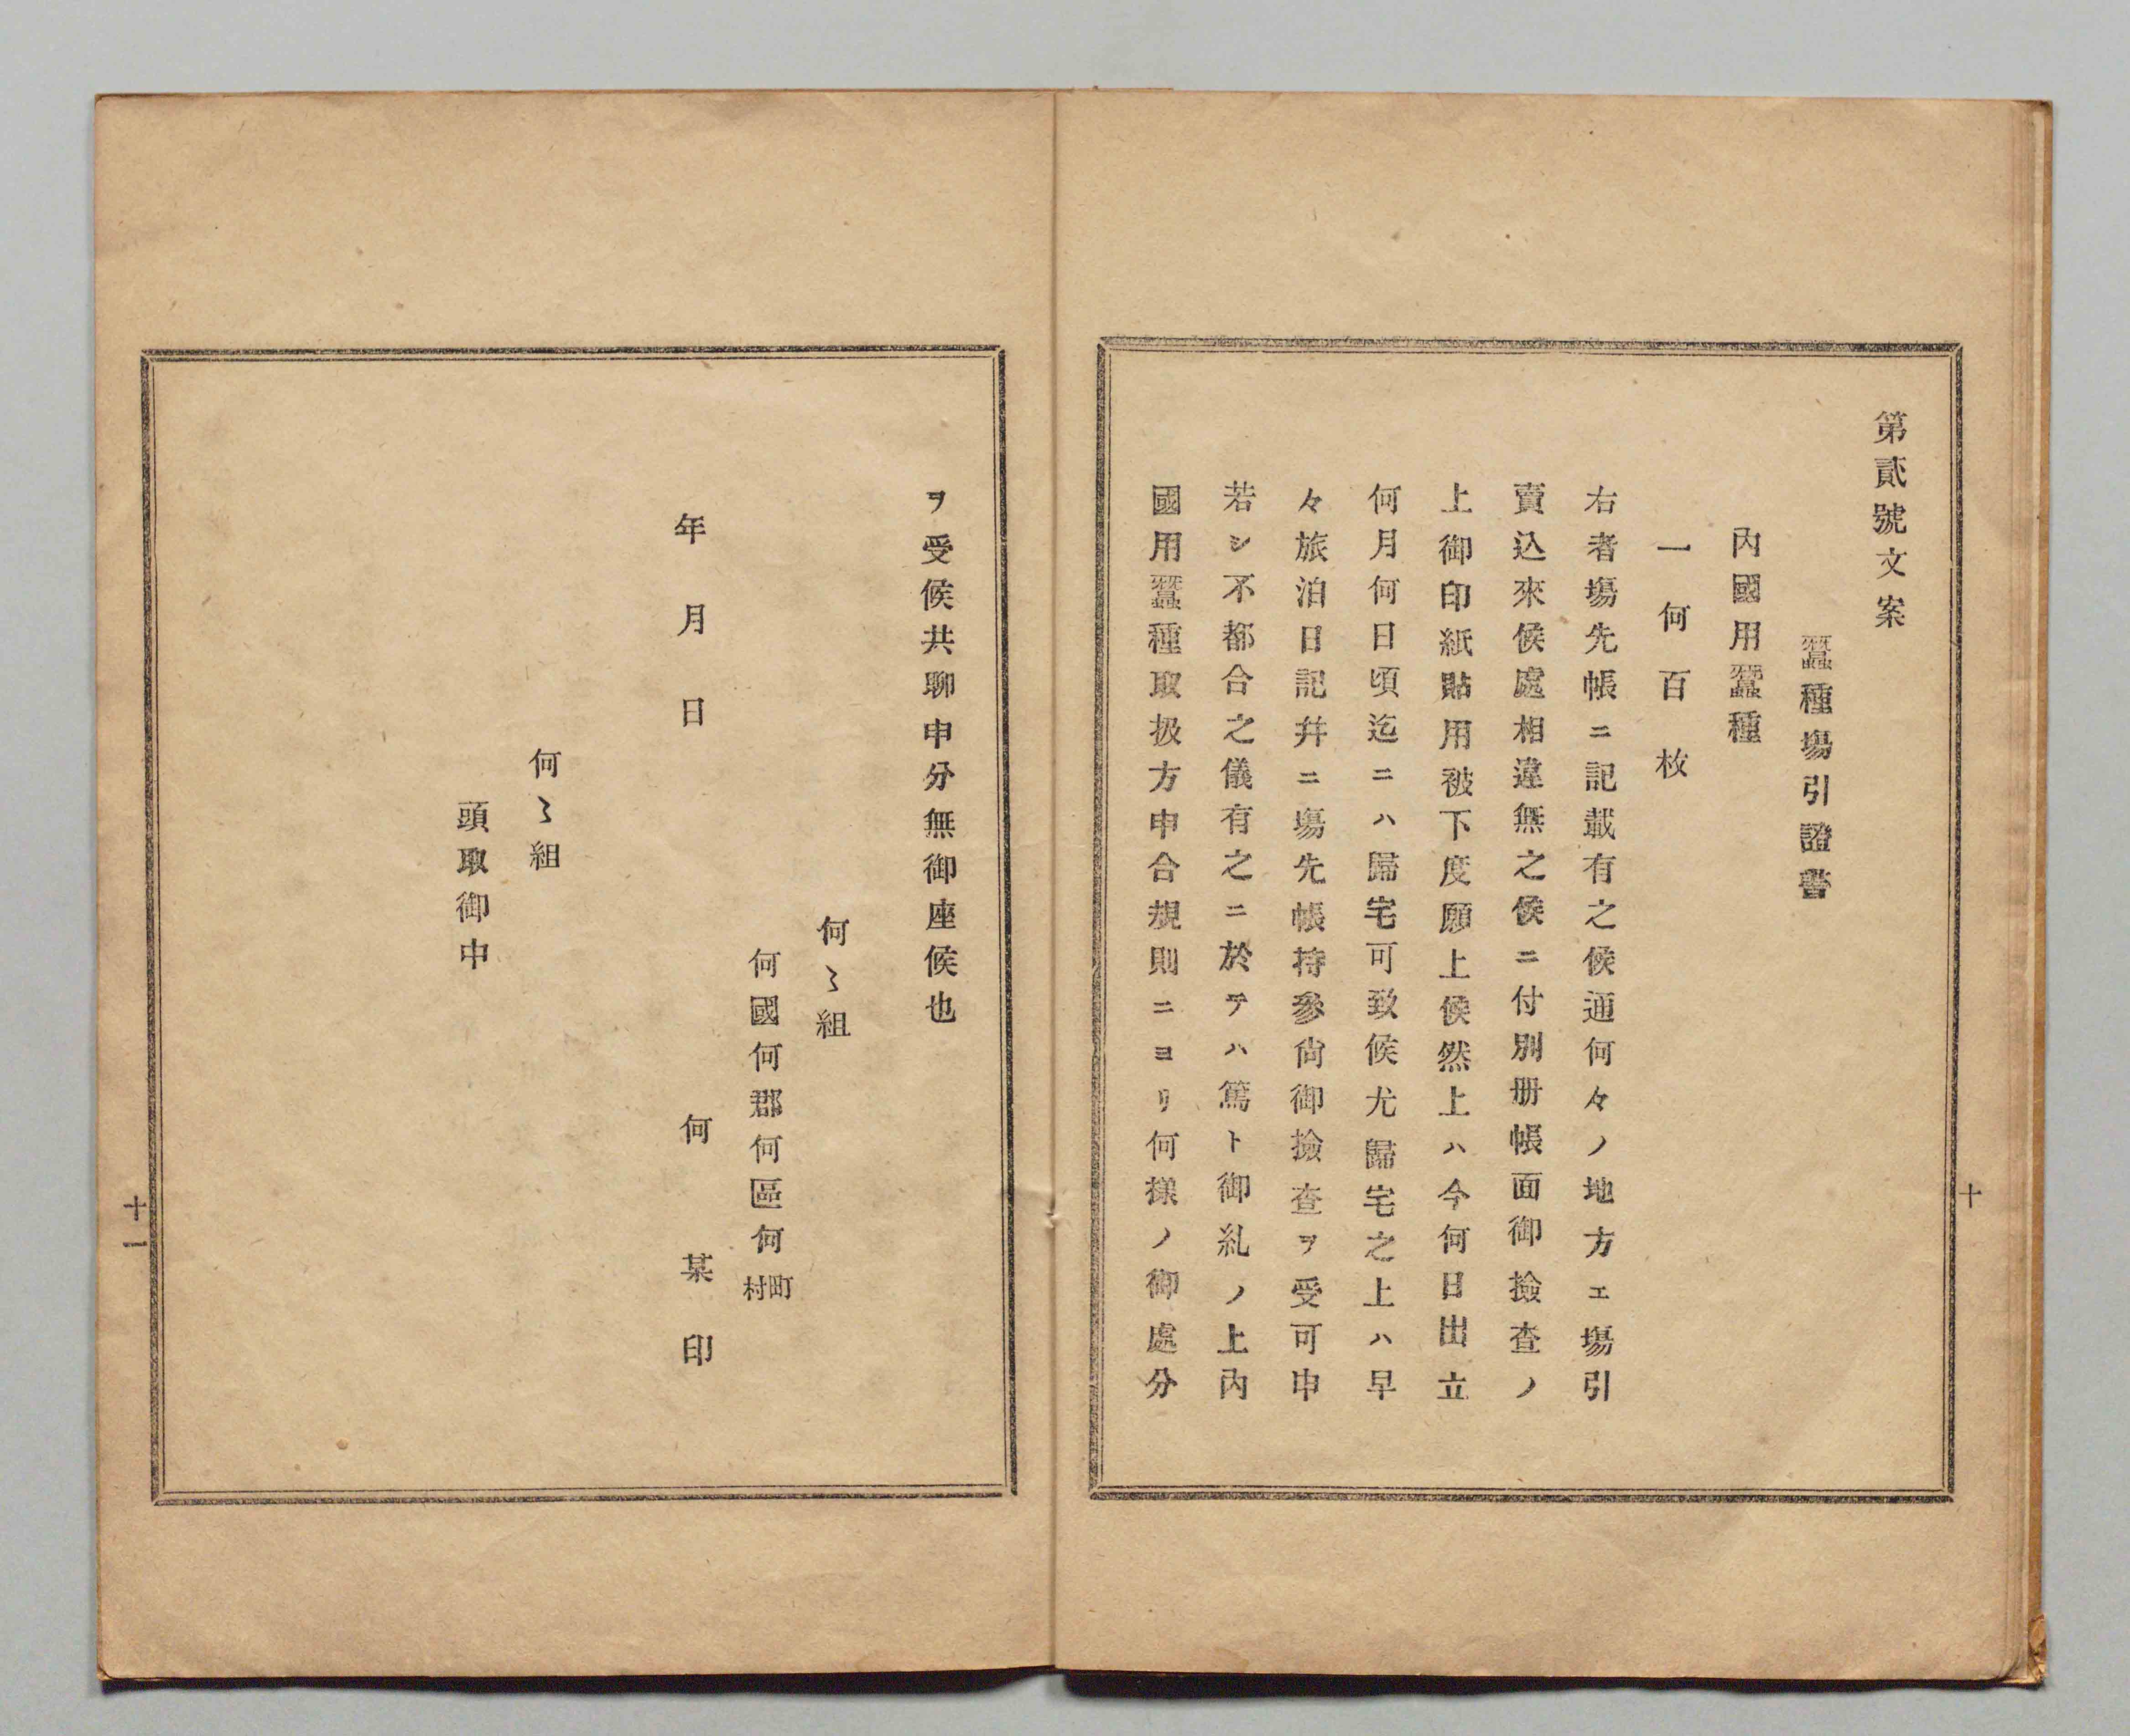 第貳號文案
蠶種塲引證書
內國用蠶種
一何百枚
右者塲先帳ニ記載有之候通何々ノ地方ェ塲引
賣込來候處相違無之候ニ付別册帳面御撿查ノ
上御印紙貼用被下度願上候然上ハ今何日出立
何月何日頃迄ニハ歸宅可致候尤歸宅之上ハ早
々旅泊日記幷ニ塲先帳持參尙御撿查ヲ受可申
若シ不都合之儀有之ニ於テハ篤ト御糺ノ上內
國用蠶種取扱方申合規則ニヨリ何樣ノ御處分
十
ヲ受候共聊申分無御座候也
何〻組
何國何郡何區何町村
年月日 何某印
何〻組
頭取御中
十一